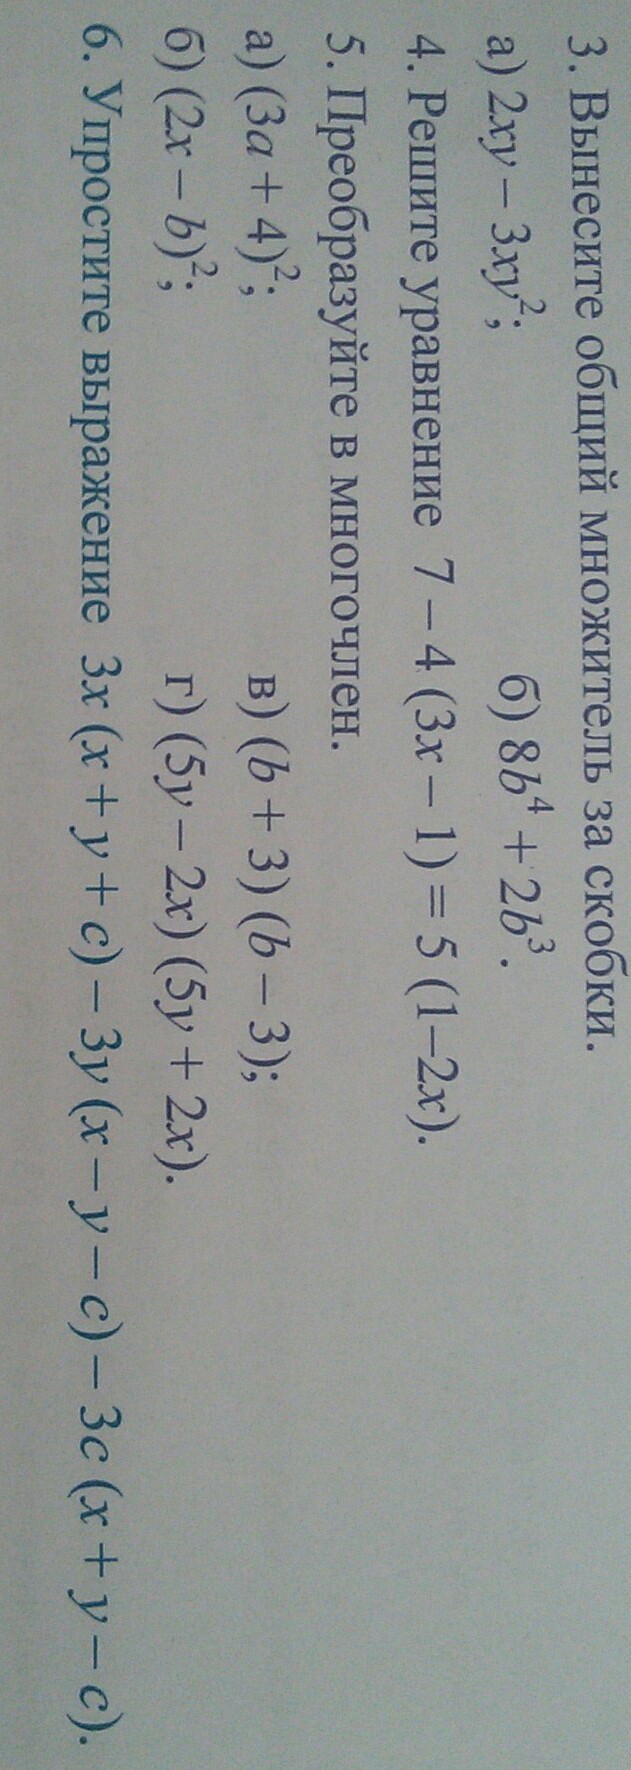 3. Вынесите общий множитель за скобки.
а) 2xy – 3xy²; б) 8b⁴ + 2b³.
4. Решите уравнение 7 – 4 (3x – 1) = 5 (1–2x).
5. Преобразуйте в многочлен.
а) (3a + 4)²; в) (b + 3) (b – 3);
б) (2x – b)²; г) (5y – 2x) (5y + 2x).
6. Упростите выражение 3x (x + y + c) – 3y (x – y – c) – 3c (x + y – c).